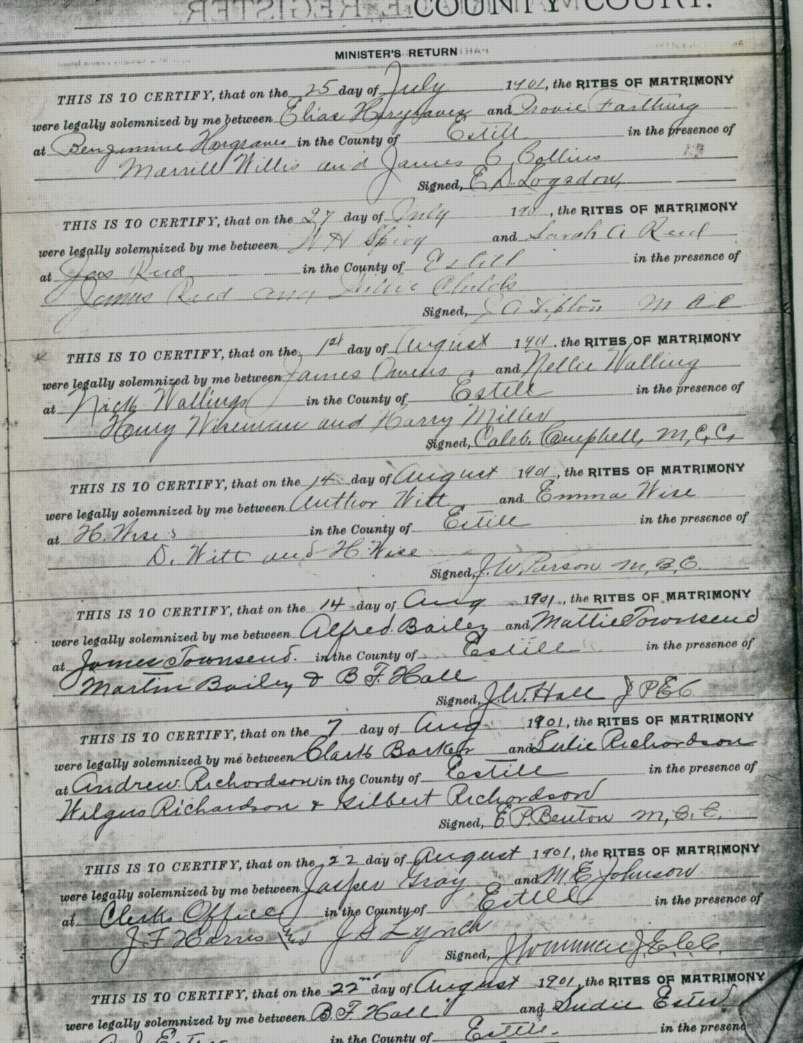 COUNTY COURT.
MINISTER'S RETURN
THIS IS TO CERTIFY, that on the 25 day of July 1901, the RITES OF MATRIMONY
were legally solemnized by me between Elias Hargraves and Farthing
at Benjamine Hargraves in the County of Estill in the presence of
Merrill Willis and James C Collins
Signed, E. D. Logsdon,
THIS IS TO CERTIFY, that on the 27 day of July 190, the RITES OF MATRIMONY
were legally solemnized by me between W H Spivy and Sarah A Reed
at Jas Reed in the County of Estill in the presence of
James Reed and Childs
Signed, J A Tipton M
THIS IS TO CERTIFY, that on the 1st day of August 1901, the RITES OF MATRIMONY
were legally solemnized by me between James Owens and Nellie Walling
at Nick Wallings in the County of Estill in the presence of
Henry Wireman and Harry Miller
Signed, Caleb Campbell, M, C, C,
THIS IS TO CERTIFY, that on the 14 day of August 1901, the RITES OF MATRIMONY
were legally solemnized by me between Author Witt and Emma Wise
at H. Wise's in the County of Estill in the presence of
D. Witt and H Wise
Signed, J. W. Pierson M, B, C.
THIS IS TO CERTIFY, that on the 14 day of Aug 1901., the RITES OF MATRIMONY
were legally solemnized by me between Alfred Bailey and Mattie Townsend
at James Townsend. in the County of Estill in the presence of
Martin Bailey & B. F. Hall
Signed, J. W. Hall J P E C
THIS IS TO CERTIFY, that on the 7 day of Aug 1901, the RITES OF MATRIMONY
were legally solemnized by me between Clark Barker and Sulie Richardson
at Andrew Richardson in the County of Estill in the presence of
Wilgus Richardson & Gilbert Richardson
Signed, E. P. Benton M, C. C.
THIS IS TO CERTIFY, that on the 22 day of August 1901, the RITES OF MATRIMONY
were legally solemnized by me between Jasper Gray and M E Johnson
at Clerks Office in the County of Estill in the presence of
J F Harris and J S Lynch
Signed,
THIS IS TO CERTIFY, that on the 22nd day of August 1901, the RITES OF MATRIMONY
were legally solemnized by me between B. F. Hall and Sudie Estes
in the County of Estill in the presence